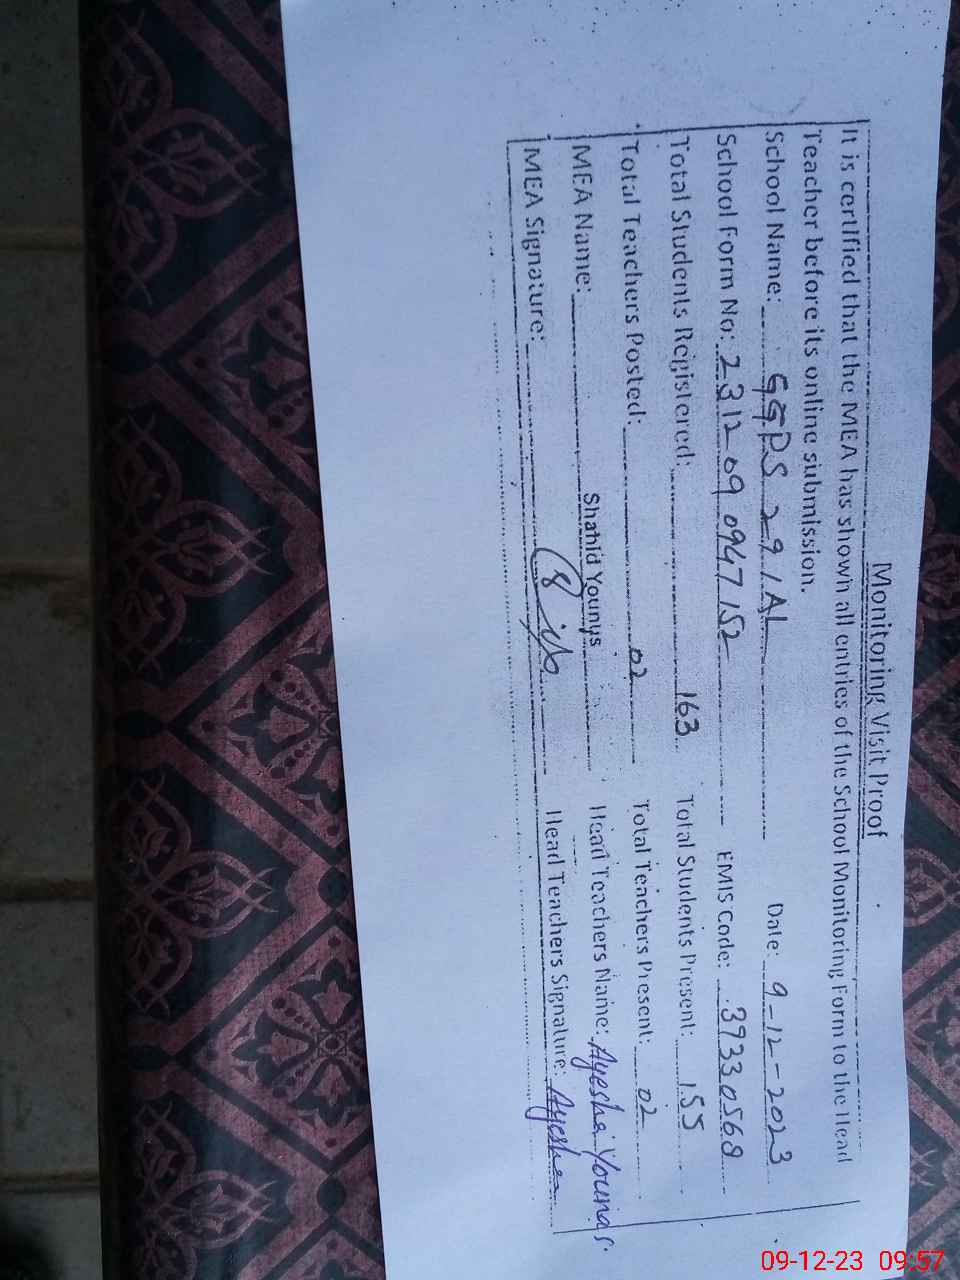 Monitoring Visit Proof
It is certified that the MEA has shown all entries of the School Monitoring Form to the Head
Teacher before its online submission.
School Name: GGPS 29/AL Date: 9-12-2023
School Form No: 231209 0947152 EMIS Code: 39330568
Total Students Registered: 163 Total Students Present: 155
Total Teachers Posted: 02 Total Teachers Present: 02
MEA Name: Shahid Younys Head Teachers Name: Ayesha Younas.
MEA Signature: Head Teachers Signature: Ayesha
09-12-23 09:57